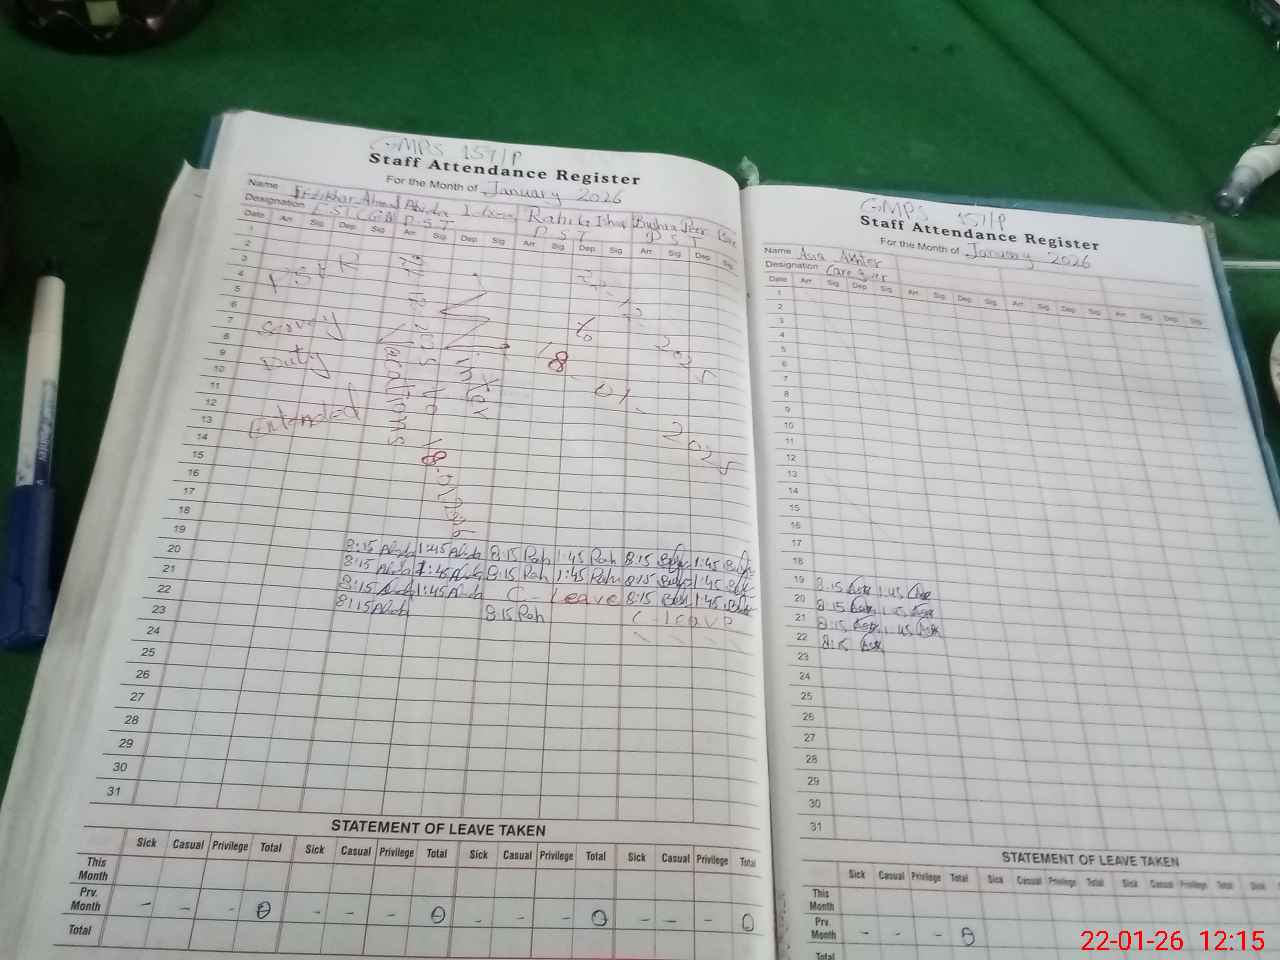 GMPS 157/P
Staff Attendance Register
For the Month of January 2026
Name Iftikhar Ahmad Abida Rahila Ishaq Bushra
Designation PST PST PST
Date Arr. Sig. Dep. Sig. Arr. Sig. Dep. Sig. Arr. Sig. Dep. Sig. Arr. Sig. Dep. Sig.
1
2
3
4
5
6
7
8
9
10
11
12
13
14
15
16
17
18
19
20
21
22
23
24
25
26
27
28
29
30
31
PSER
Survey
Duty
Extended
Winter
Vacations
22-12-2025
To
18-01-2025
8:15 Abida 1:45 Abida 8:15 Rah 1:45 Rah 8:15 1:45
8:15 Abida 1:45 Abida 8:15 Rah 1:45 Rah 8:15 1:45
8:15 Abida 1:45 Abida C-Leave 8:15 1:45
8:15 Abida 8:15 Rah C-leave
STATEMENT OF LEAVE TAKEN
Sick Casual Privilege Total Sick Casual Privilege Total Sick Casual Privilege Total Sick Casual Privilege Total
This Month
Prv. Month - - - 0 - - - 0 - - - 0 - - - 0
Total
GMPS 157/P
Staff Attendance Register
For the Month of January 2026
Name Asia Akhter
Designation Caregiver
Date Arr. Sig. Dep. Sig. Arr. Sig. Dep. Sig. Arr. Sig. Dep. Sig. Arr. Sig. Dep. Sig.
1
2
3
4
5
6
7
8
9
10
11
12
13
14
15
16
17
18
19 8:15 1:45
20 8:15 1:45
21 8:15 1:45
22 8:15
23
24
25
26
27
28
29
30
31
STATEMENT OF LEAVE TAKEN
Sick Casual Privilege Total Sick Casual Privilege Total Sick Casual Privilege Total Sick
This Month
Prv. Month - - - 0
Total
22-01-26 12:15